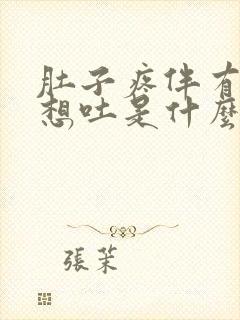 肚子疼伴有
想吐是什麽
張茉